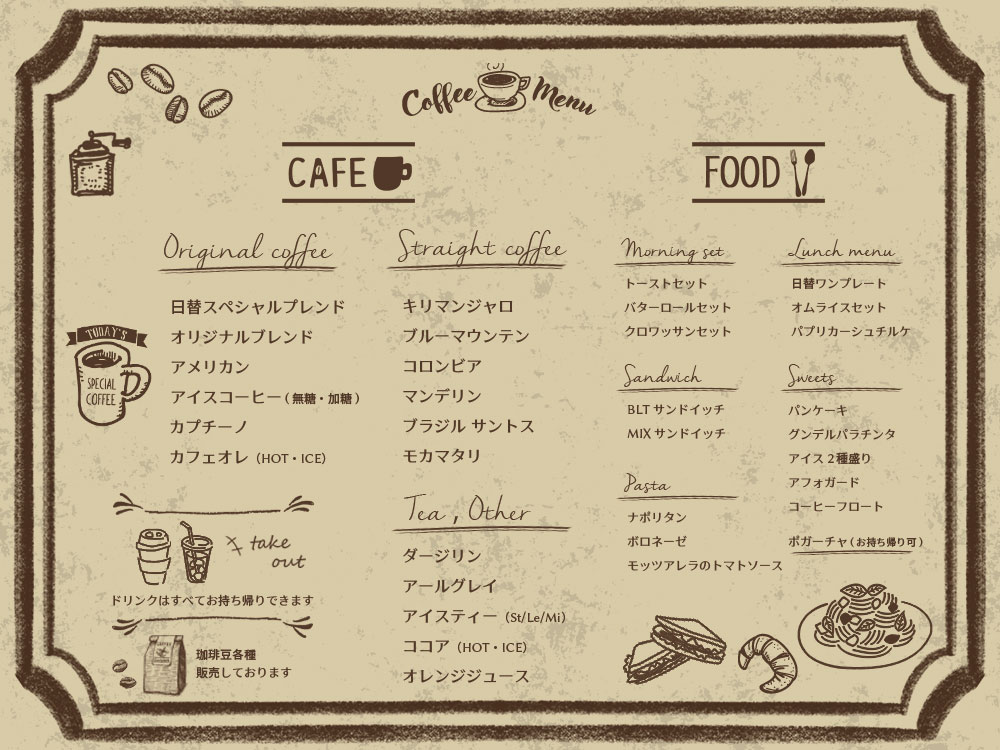 Coffee Menu
CAFE
Original coffee
日替スペシャルブレンド
オリジナルブレンド
アメリカン
アイスコーヒー ( 無糖・加糖 )
カプチーノ
カフェオレ（HOT・ICE）
TODAY'S
SPECIAL
COFFEE
take
out
ドリンクはすべてお持ち帰りできます
珈琲豆各種
販売しております
Straight coffee
キリマンジャロ
ブルーマウンテン
コロンビア
マンデリン
ブラジル サントス
モカマタリ
Tea , Other
ダージリン
アールグレイ
アイスティー（St/Le/Mi）
ココア（HOT・ICE）
オレンジジュース
FOOD
Morning set
トーストセット
バターロールセット
クロワッサンセット
Sandwich
BLT サンドイッチ
MIX サンドイッチ
Pasta
ナポリタン
ボロネーゼ
モッツアレラのトマトソース
Lunch menu
日替ワンプレート
オムライスセット
パプリカーシュチルケ
Sweets
パンケーキ
グンデルパラチンタ
アイス 2 種盛り
アフォガード
コーヒーフロート
ポガーチャ ( お持ち帰り可 )